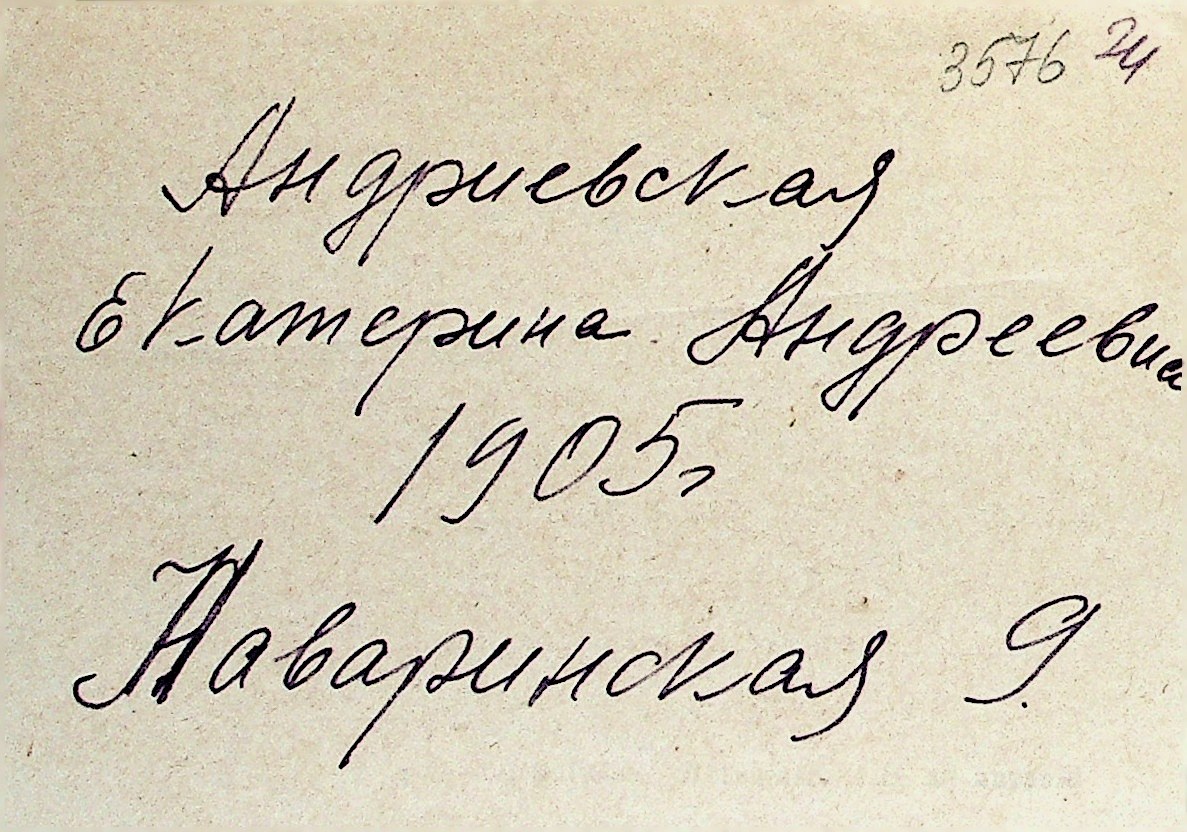 3576 24
Андриевская
Екатерина Андреевна
1905г
Наваринская 9.